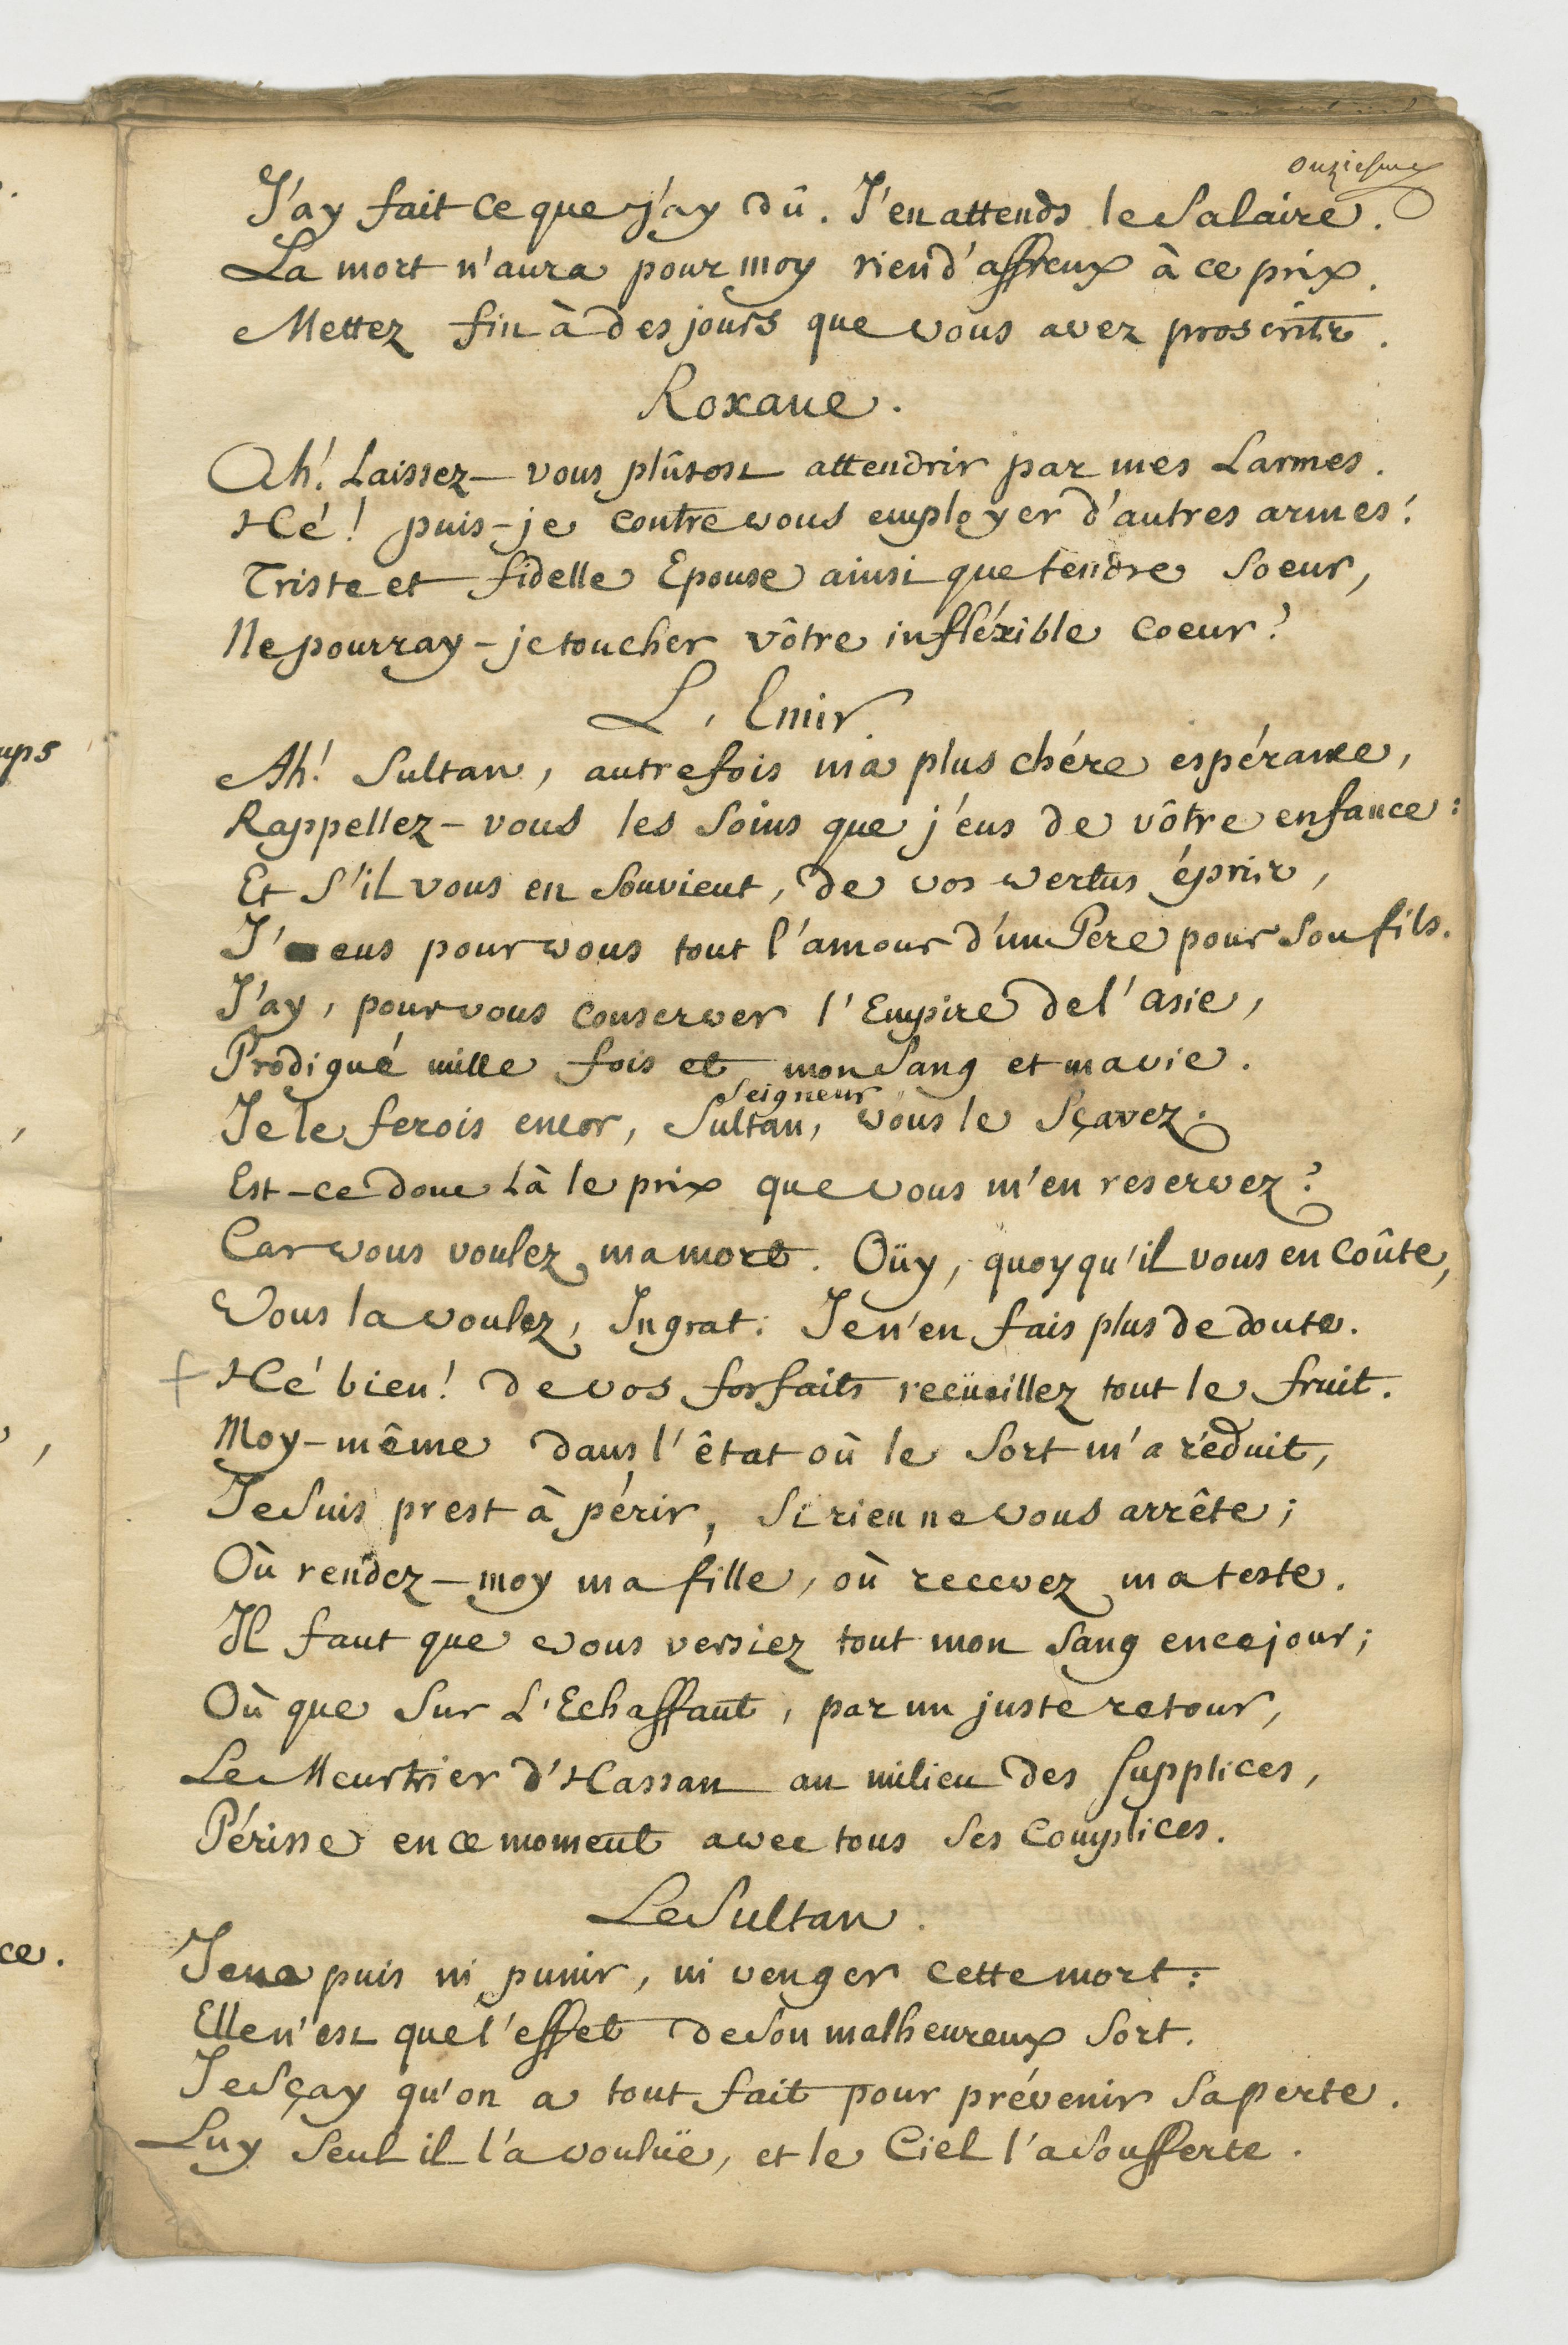 onziesme
J'ay fait ce que j'ay dû. J'en attends le Salaire.
La mort n'aura pour moy rien d'affreux à ce prix.
Mettez fin à des jours que vous avez proscrits.
Roxane.
Ah! Laissez-vous plûtost attendrir par mes Larmes.
Hé! puis-je contre vous employer d'autres armes?
Triste et fidelle Epouse ainsi que tendre Soeur,
Ne pourray-je toucher vôtre infléxible coeur?
L'Emir.
Ah! Sultan, autrefois ma plus chére espérance,
Rappellez-vous les Soins que j'eus de vôtre enfance:
Et S'il vous en Souvient, de vos vertus épris,
J'eus pour vous tout l'amour d'un Pere pour Son fils.
J'ay, pour vous conserver l'Empire de l'asie,
Prodigué mille fois et mon Sang et ma vie.
Seigneur
Je le ferois encor, Sultan, vous le Sçavez.
Est-ce donc Là le prix que vous m'en reservez?
Car vous voulez ma mort. Oüy, quoy qu'il vous en Coûte,
Vous la voulez, Ingrat. Je n'en fais plus de doute.
Hé bien! de vos forfaits recüeillez tout le fruit.
Moy-même dans l'état où le Sort m'a réduit,
Je Suis prest à périr, Si rien ne vous arrête;
Où rendez-moy ma fille, où recevez ma teste.
Il faut que vous versiez tout mon Sang en ce jour;
Où que Sur L'Echaffaut, par un juste retour,
Le Meurtrier d'Hassan au milieu des Supplices,
Périsse en ce moment avec tous Ses Complices.
Le Sultan.
Je ne puis ni punir, ni venger cette mort:
Elle n'est que l'effet de Son malheureux Sort.
Je Sçay qu'on a tout fait pour prévenir Sa perte.
Luy Seul il l'a vouluë, et le Ciel l'a Soufferte.
ups
ce.